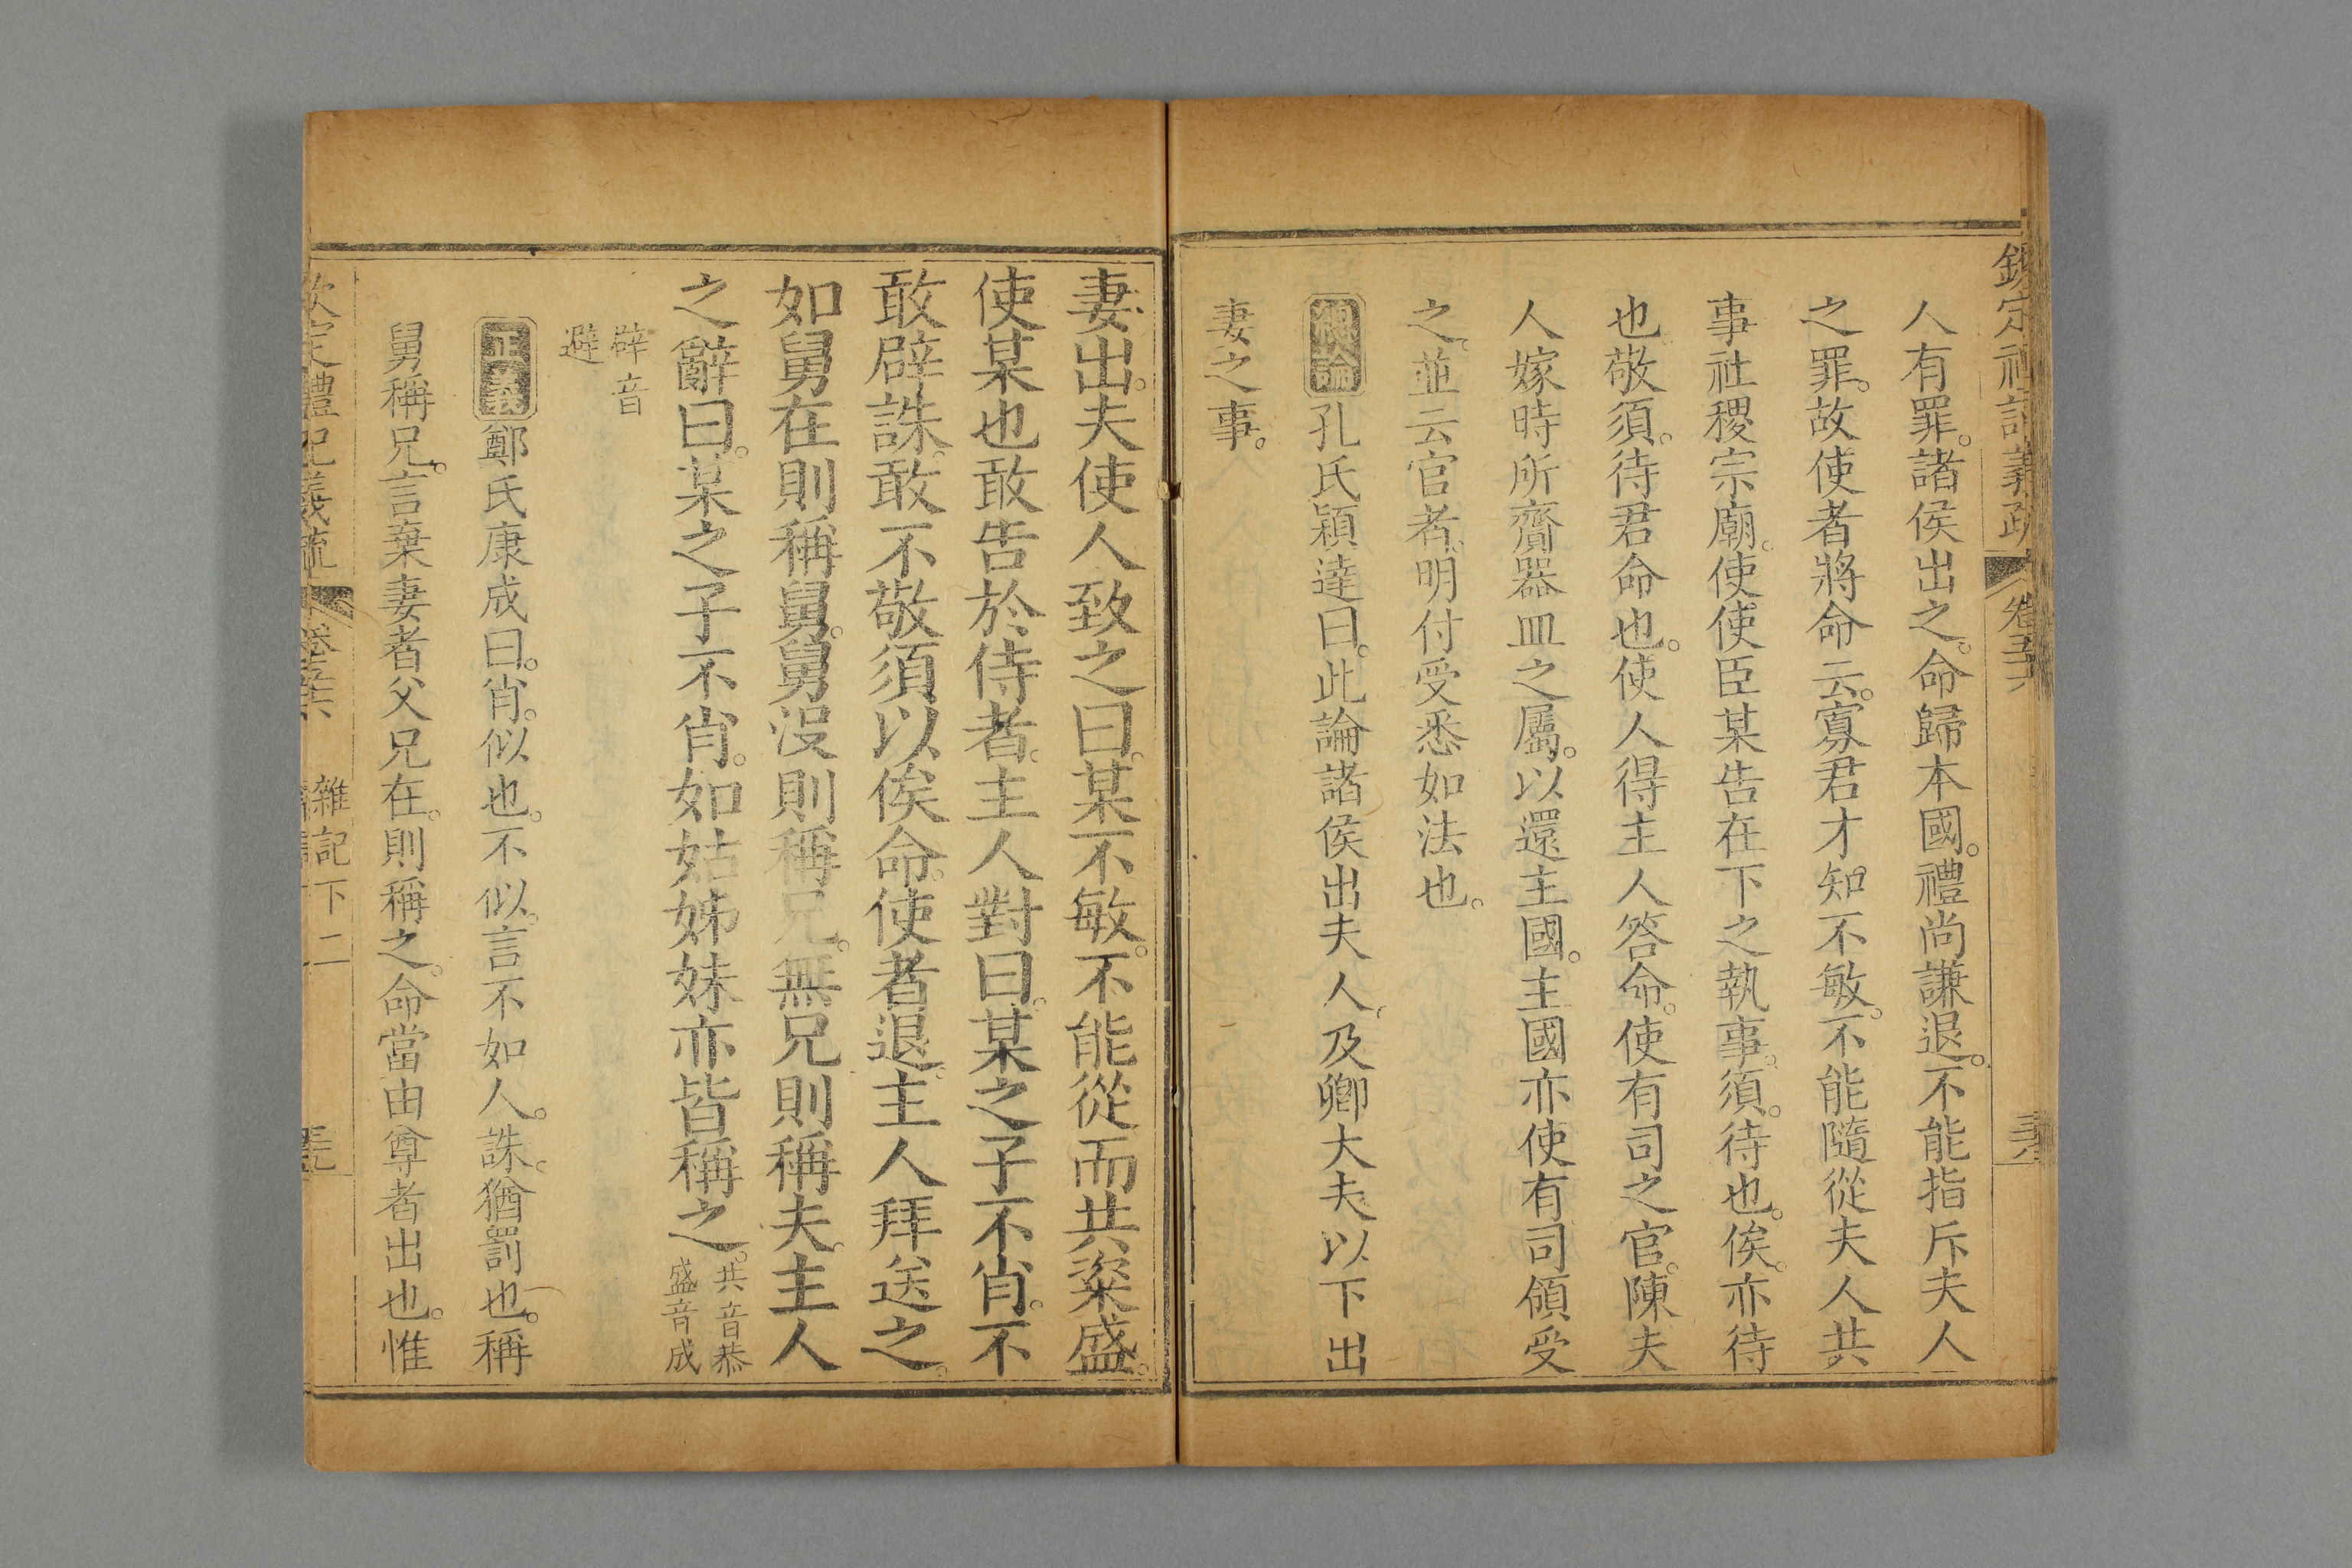 欽定禮記義疏 卷五十六
人有罪。諸侯出之。命歸本國。禮尚謙退。不能指斥夫人
之罪。故使者將命云。寡君才知不敏。不能隨從夫人共
事社稷宗廟。使使臣某告在下之執事。須。待也。俟。亦待
也敬須。待君命也。使人得主人答命。使有司之官。陳夫
人嫁時所齎器皿之屬。以還主國。主國亦使有司領受
之。並云官者。明付受悉如法也。
總論孔氏穎達曰。此論諸侯出夫人。及卿大夫以下出
妻之事。
妻出。夫使人致之曰。某不敏。不能從而共粢盛。
使某也敢告於侍者。主人對曰。某之子不肖。不
敢辟誅。敢不敬須以俟命。使者退。主人拜送之。
如舅在則稱舅。舅沒則稱兄。無兄則稱夫。主人
之辭曰。某之子不肖。如姑姊妹亦皆稱之。共音恭
盛音成
辟音
避
正義鄭氏康成曰。肖。似也。不似。言不如人。誅。猶罰也。稱
舅稱兄。言棄妻者父兄在。則稱之。命當由尊者出也。惟
欽定禮記義疏 卷五十六 雜記下二